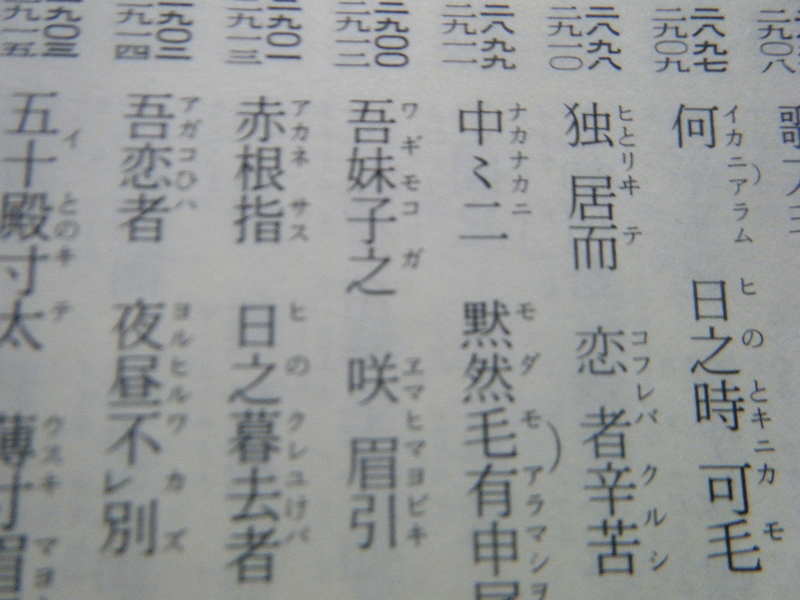 二九〇八
二八九七
二九〇九
何 日之時 可毛
イカニアラム ヒの とキニカモ
二八九八
二九一〇
独居而 恋者辛苦
ヒとリヰテ コフレバクルシ
二八九九
二九一一
中〻二 黙然毛有申尾
ナカナカニ モダモアラマシヲ
二九〇〇
二九一二
吾妹子之 咲眉引
ワギモコガ ヱマヒマヨビキ
二九〇一
二九一三
赤根指 日之暮去者
アカネサス ヒのクレユけバ
二九〇二
二九一四
吾恋者 夜昼不レ別
アガコひハ ヨルヒルワカズ
二九〇三
二九一五
五十殿寸太 薄寸眉
イとのキテ ウスキマヨ